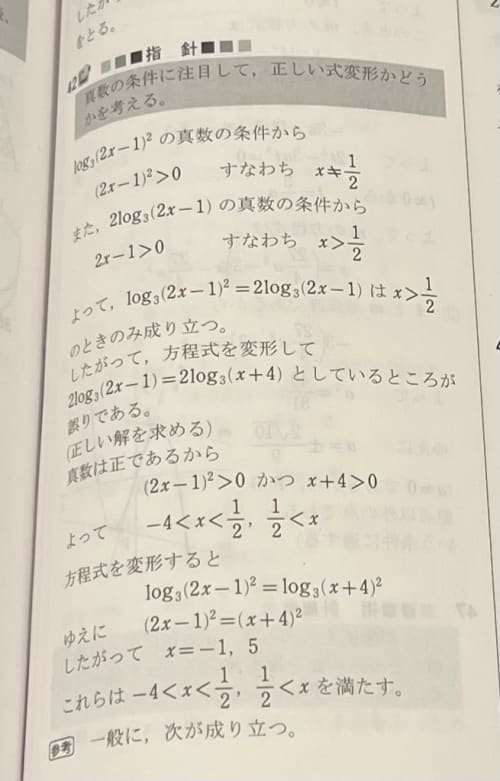 したが
をとる。
42 指針
真数の条件に注目して，正しい式変形かどう
かを考える。
log₃(2x−1)² の真数の条件から
(2x−1)²>0 すなわち x≠1/2
また，2log₃(2x−1) の真数の条件から
2x−1>0 すなわち x>1/2
よって，log₃(2x−1)²=2log₃(2x−1) は x>1/2
のときのみ成り立つ。
したがって，方程式を変形して
2log₃(2x−1)=2log₃(x+4) としているところが
誤りである。
(正しい解を求める)
真数は正であるから
(2x−1)²>0 かつ x+4>0
よって −4<x<1/2, 1/2<x
方程式を変形すると
log₃(2x−1)²=log₃(x+4)²
ゆえに (2x−1)²=(x+4)²
したがって x=−1, 5
これらは −4<x<1/2, 1/2<x を満たす。
参考 一般に，次が成り立つ。